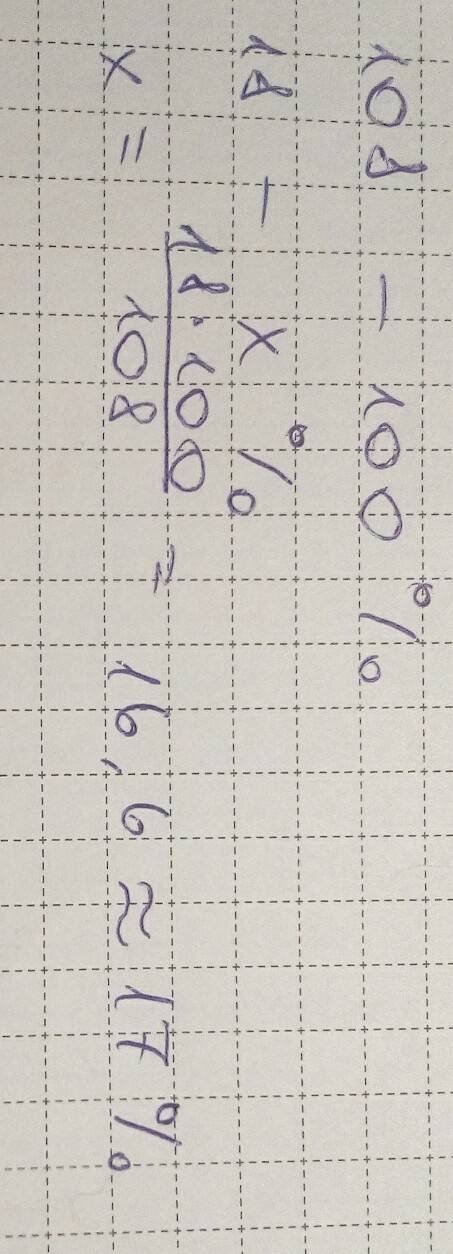 108 - 100%
18 - x%
x = 18·100/108 = 16,6 ≈ 17%